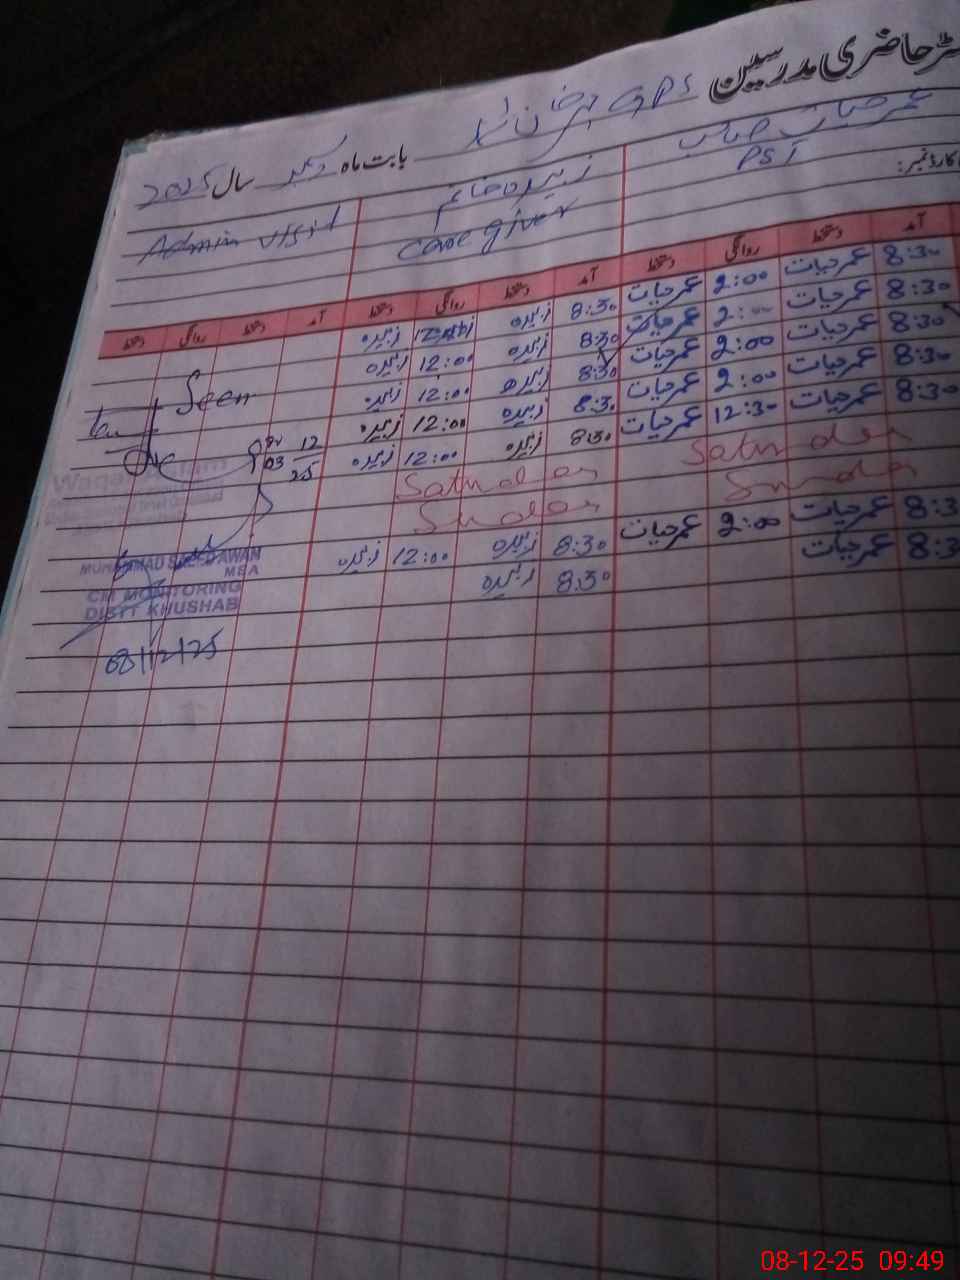 حاضری مدرسین GPS
بابت ماہ دسمبر سال 2025
عمر حیات صاحب
PST
زبیدہ خانم
Care giver
Admin visit
آمد دستخط روانگی دستخط آمد دستخط روانگی دستخط آمد دستخط روانگی دستخط
8:30 عمرحیات 2:00 عمرحیات 8:30 زبیدہ زبیدہ
8:30 عمرحیات 2:00 عمرحیات 8:30 زبیدہ 12:00 زبیدہ
8:30 عمرحیات 2:00 عمرحیات 8:30 زبیدہ 12:00 زبیدہ
8:30 عمرحیات 2:00 عمرحیات 8:30 زبیدہ 12:00 زبیدہ
8:30 عمرحیات 12:30 عمرحیات 8:30 زبیدہ 12:00 زبیدہ
Saturday Saturday
Sunday Sunday
8:3 عمرحیات 2:00 عمرحیات 8:30 زبیدہ 12:00 زبیدہ
8:3 عمرحیات 8:30 زبیدہ
Seen
03 12
25
MUHAMMAD SAEED AWAN
MEA
CM MONITORING
DISTT KHUSHAB
08/12/25
08-12-25 09:49